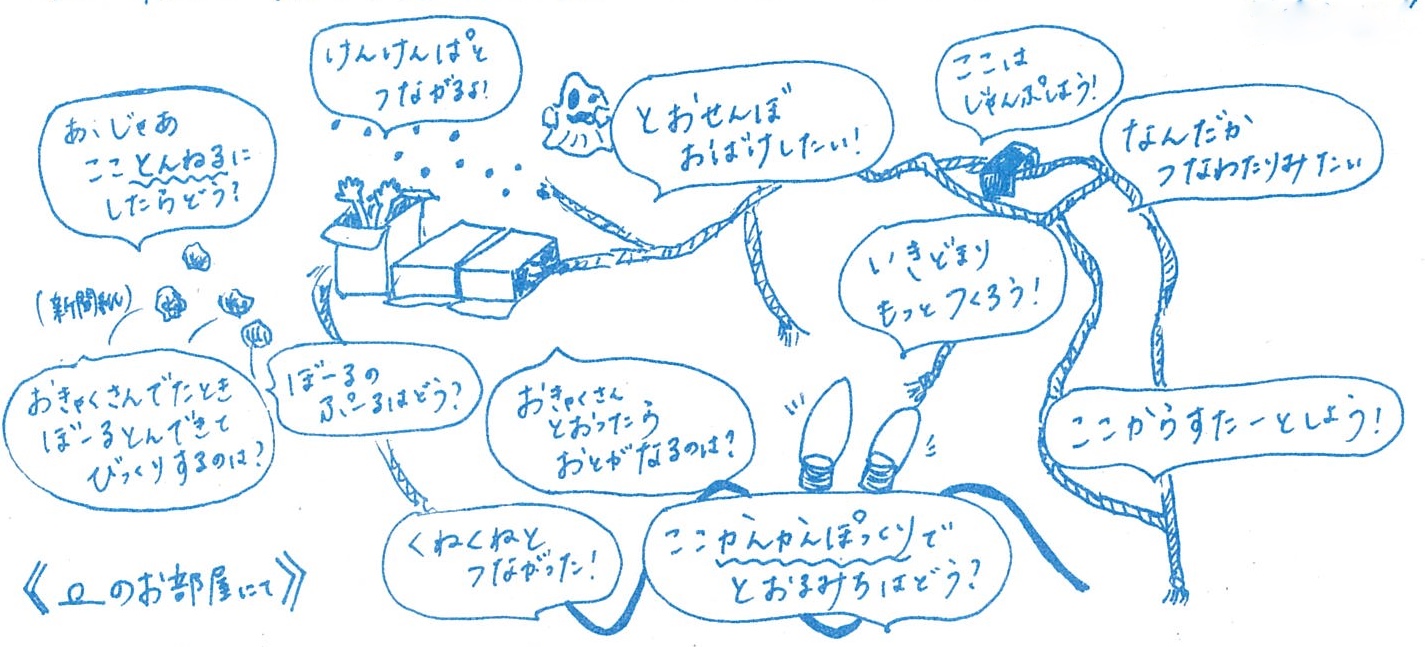 けんけんぱと
つながるよ!
あ、じゃあ
ここ とんねるに
したらどう?
とおせんぼ
おばけしたい!
ここは
じゃんぷしよう!
なんだか
つなわたりみたい
いきどまり
もっとつくろう!
(新聞紙)
おきゃくさんでたとき
ぼーるとんできて
びっくりするのは?
ぼーるの
ぷーるはどう?
おきゃくさん
とおったら
おとがなるのは?
ここからすたーとしよう!
くねくねと
つながった!
ここかんかんぽっくりで
とおるみちはどう?
のお部屋にて